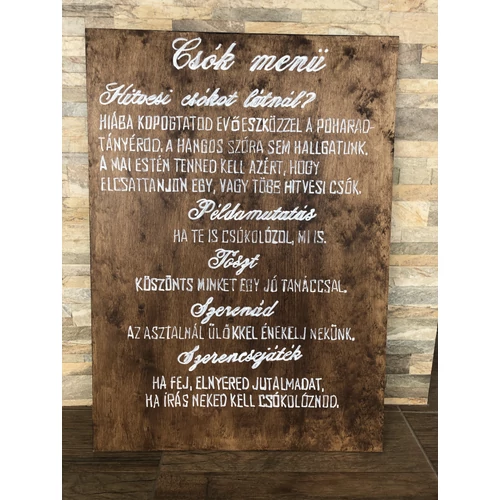 Csók menü
Hitvesi csókot látnál?
HIÁBA KOPOGTATOD EVŐESZKÖZZEL A POHARAD-
TÁNYÉROD. A HANGOS SZÓRA SEM HALLGATUNK.
A MAI ESTÉN TENNED KELL AZÉRT, HOGY
ELCSATTANJON EGY, VAGY TÖBB HITVESI CSÓK.
Példamutatás
HA TE IS CSÓKOLÓZOL, MI IS.
Tószt
KÖSZÖNTS MINKET EGY JÓ TANÁCCSAL.
Szerenád
AZ ASZTALNÁL ÜLŐKKEL ÉNEKELJ NEKÜNK.
Szerencsejáték
HA FEJ, ELNYERED JUTALMADAT,
HA ÍRÁS NEKED KELL CSÓKOLÓZNOD.